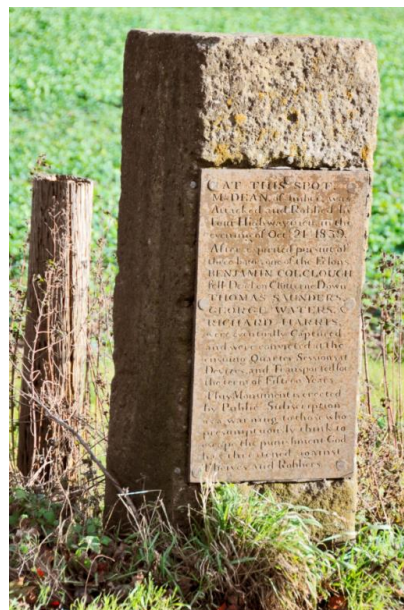 AT THIS SPOT
Mr DEAN, of Imber, was
Attacked and Robbed by
Four Highwaymen, in the
evening of Octr 21, 1839.
After a spirited pursuit of
three hours one of the Felons
BENJAMIN COLCLOUGH
fell Dead on Chitterne Down
THOMAS SAUNDERS,
GEORGE WATERS, &
RICHARD HARRIS,
were eventually Captured
and were convicted at the
ensuing Quarter Sessions at
Devizes, and Transported for
the term of Fifteen Years.
This Monument is erected
by Public Subscription
as a warning to those who
presumptuously think to
escape the punishment God
has threatened against
Thieves and Robbers.